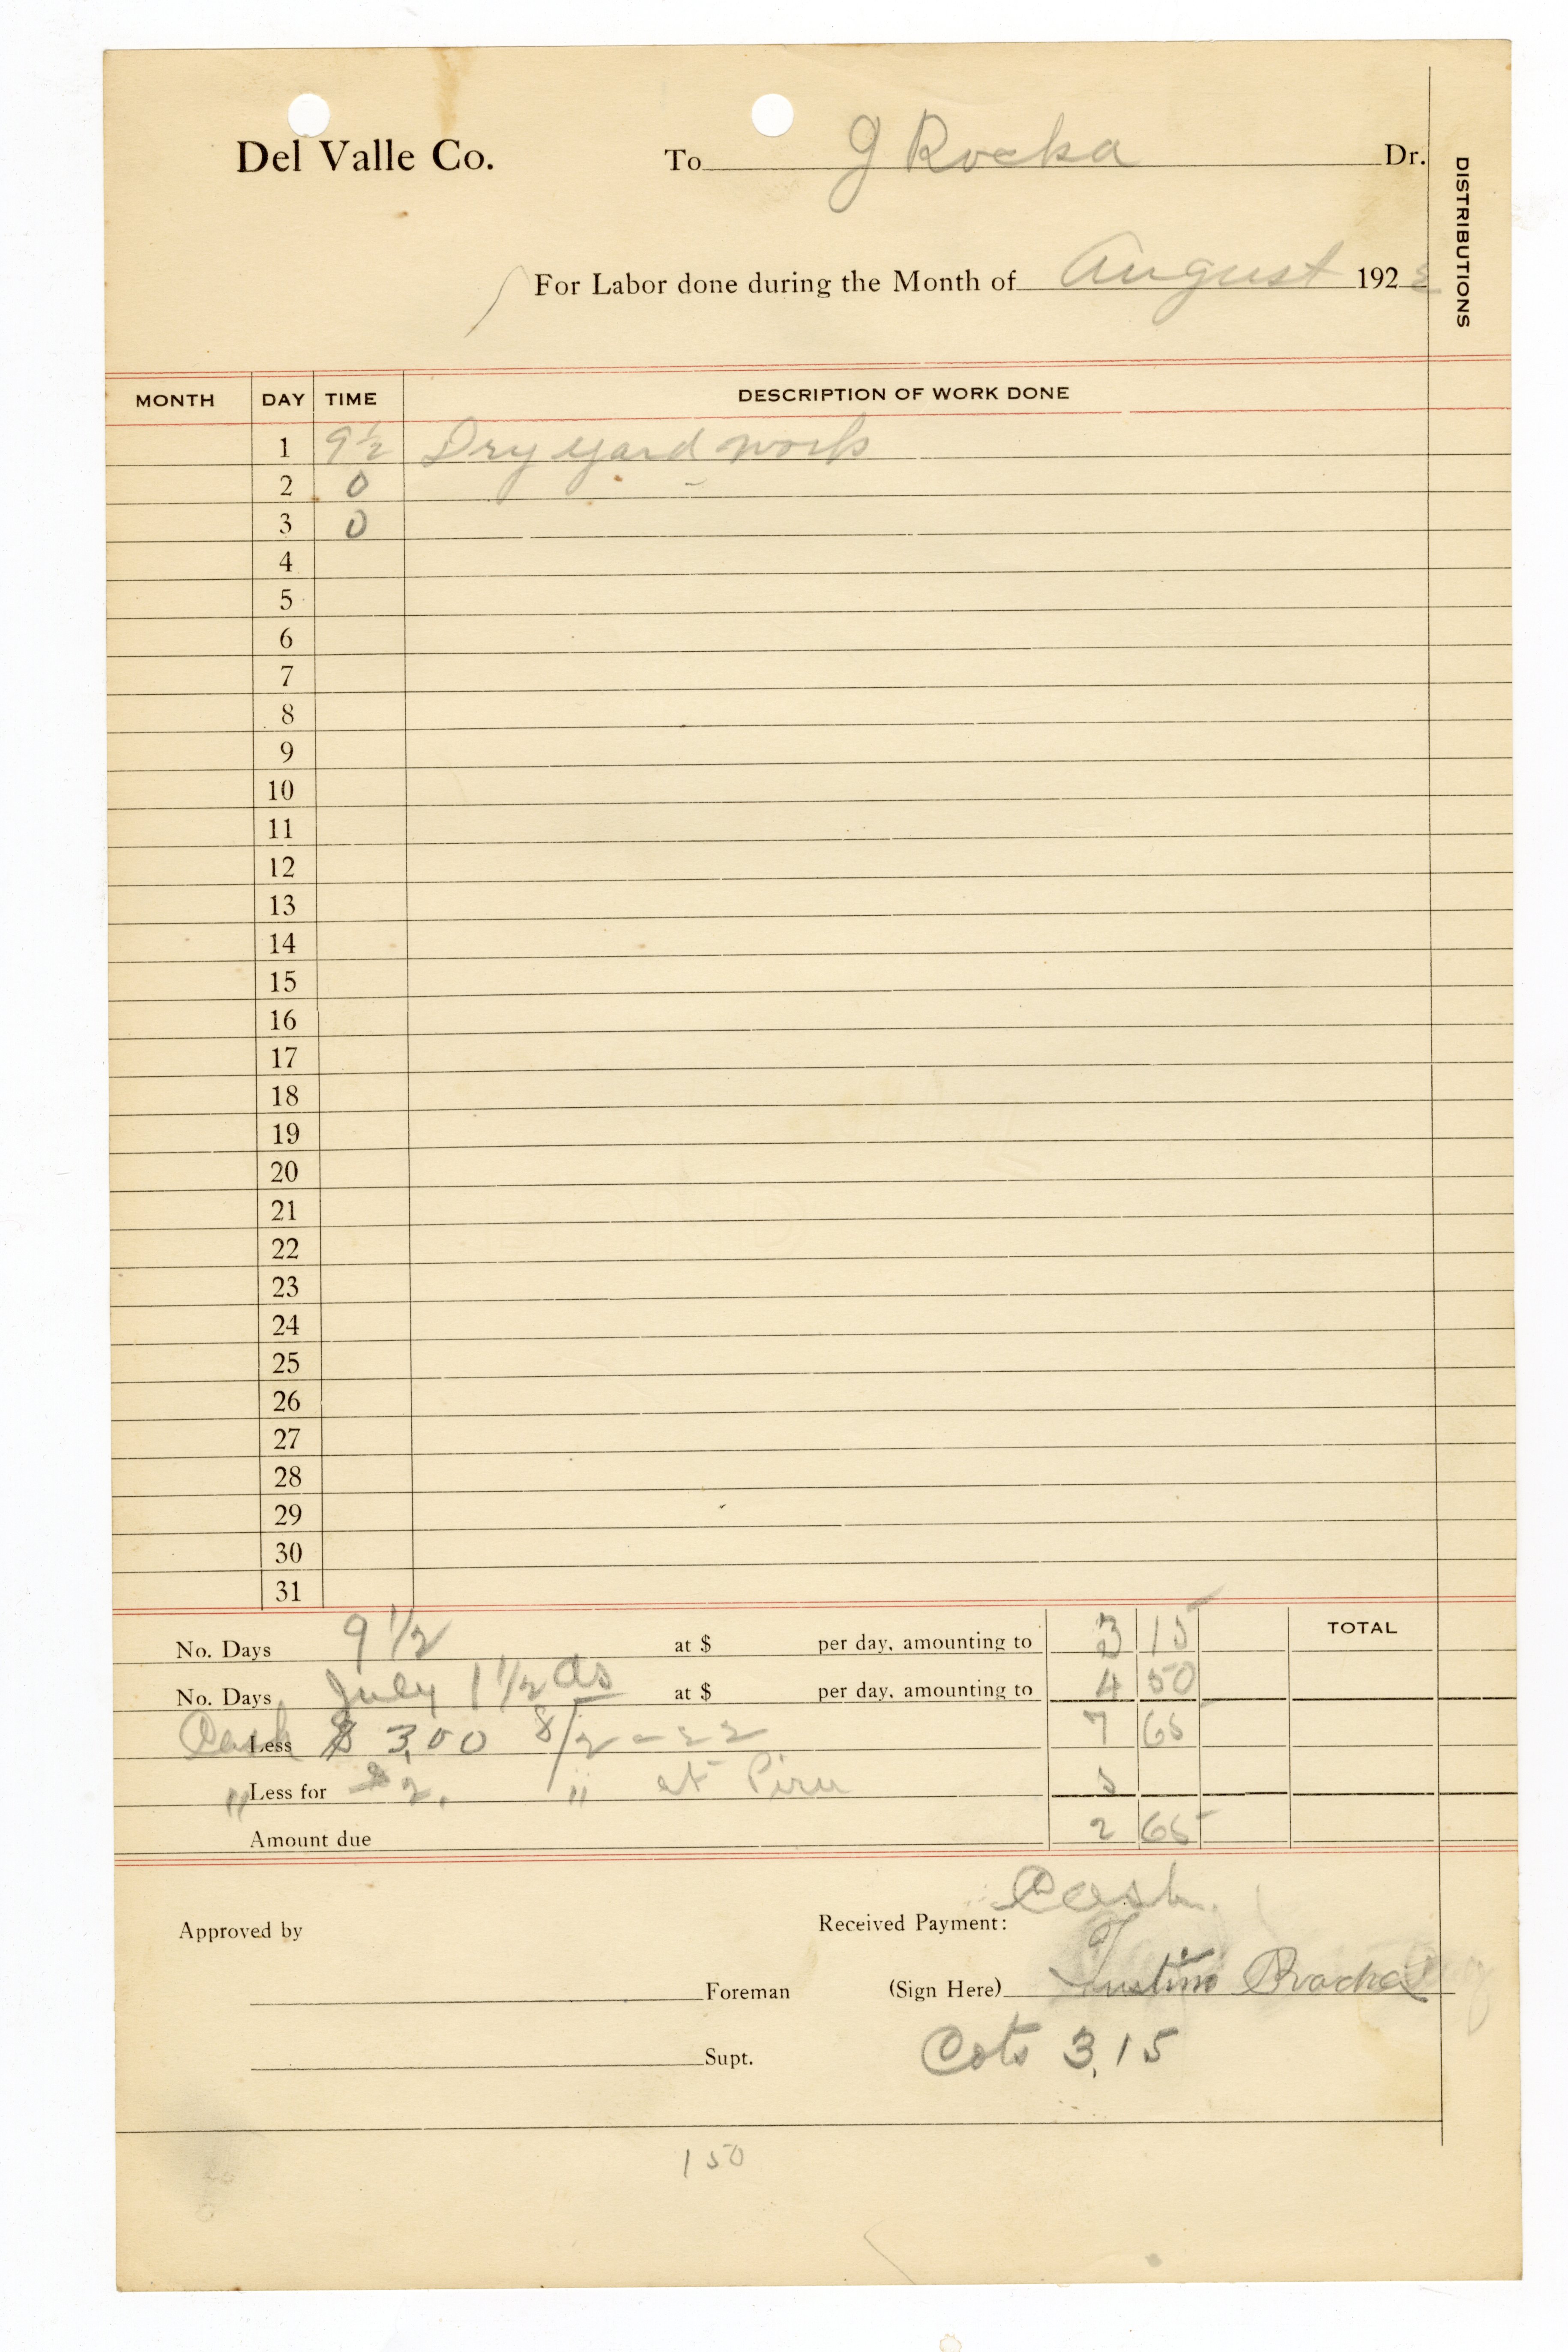 Del Valle Co. To J Rocha Dr.
DISTRIBUTIONS
For Labor done during the Month of August 1922
MONTH DAY TIME DESCRIPTION OF WORK DONE
1 9½ Dry yard work
2 0
3 0
4
5
6
7
8
9
10
11
12
13
14
15
16
17
18
19
20
21
22
23
24
25
26
27
28
29
30
31
TOTAL
No. Days 9 1/2 at $ per day, amounting to 3 15
No. Days July 1 1/2 ds at $ per day, amounting to 4 50
Cash Less $ 3.00 8/2-22 7 65
" Less for $2. " at Piru 5
Amount due 2 65
Cash
Approved by Received Payment:
Foreman (Sign Here) Justino Rocha
Supt. Cots 3.15
150